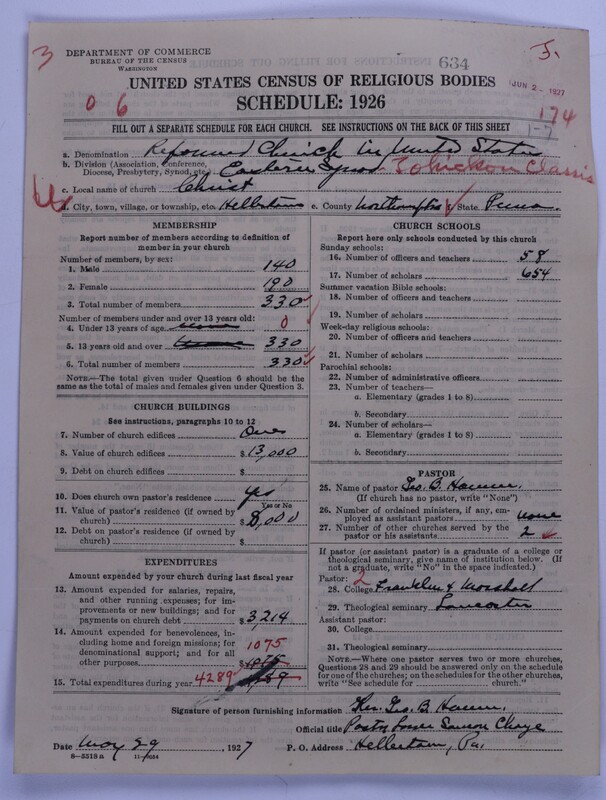 3
DEPARTMENT OF COMMERCE
BUREAU OF THE CENSUS
WASHINGTON
634
5.
UNITED STATES CENSUS OF RELIGIOUS BODIES
JUN 2 - 1927
0 6
SCHEDULE: 1926
174
1-7
FILL OUT A SEPARATE SCHEDULE FOR EACH CHURCH. SEE INSTRUCTIONS ON THE BACK OF THIS SHEET
a. Denomination Reformed Church in United States
b. Division (Association, Conference, Diocese, Presbytery, Synod, etc.) Eastern Synod Tohickon Classis
c. Local name of church Christ
City, town, village, or township, etc. Hellertown e. County Northampton State Penna
MEMBERSHIP
Report number of members according to definition of member in your church
Number of members, by sex:
1. Male 140
2. Female 190
3. Total number of members 330
Number of members under and over 13 years old:
4. Under 13 years of age none 0
5. 13 years old and over 330
6. Total number of members 330
NOTE.—The total given under Question 6 should be the same as the total of males and females given under Question 3.
CHURCH BUILDINGS
See instructions, paragraphs 10 to 12
7. Number of church edifices One
8. Value of church edifices $13,000
9. Debt on church edifices $
10. Does church own pastor's residence yes
Yes or No
11. Value of pastor's residence (if owned by church) $8,000
12. Debt on pastor's residence (if owned by church) $
EXPENDITURES
Amount expended by your church during last fiscal year
13. Amount expended for salaries, repairs, and other running expenses; for improvements or new buildings; and for payments on church debt $3,214
14. Amount expended for benevolences, including home and foreign missions; for denominational support; and for all other purposes 1075
15. Total expenditures during year 4289
CHURCH SCHOOLS
Report here only schools conducted by this church
Sunday schools:
16. Number of officers and teachers 58
17. Number of scholars 654
Summer vacation Bible schools:
18. Number of officers and teachers
19. Number of scholars
Week-day religious schools:
20. Number of officers and teachers
21. Number of scholars
Parochial schools:
22. Number of administrative officers
23. Number of teachers—
a. Elementary (grades 1 to 8)
b. Secondary
24. Number of scholars—
a. Elementary (grades 1 to 8)
b. Secondary
PASTOR
25. Name of pastor Geo. B. Hamm.
(If church has no pastor, write "None")
26. Number of ordained ministers, if any, employed as assistant pastors none
27. Number of other churches served by the pastor or his assistants 2
If pastor (or assistant pastor) is a graduate of a college or theological seminary, give name of institution below. (If not a graduate, write "No" in the space indicated.)
Pastor: 2
28. College Franklin & Marshall
29. Theological seminary Lancaster
Assistant pastor:
30. College
31. Theological seminary
NOTE.—Where one pastor serves two or more churches, Questions 28 and 29 should be answered only on the schedule for one of the churches; on the schedules for the other churches, write "See schedule for church."
Signature of person furnishing information Rev. Geo. B. Hamm
Official title Pastor Lower Saucon Charge
Date May 29, 1927
P. O. Address Hellertown, Pa.
8-5518a